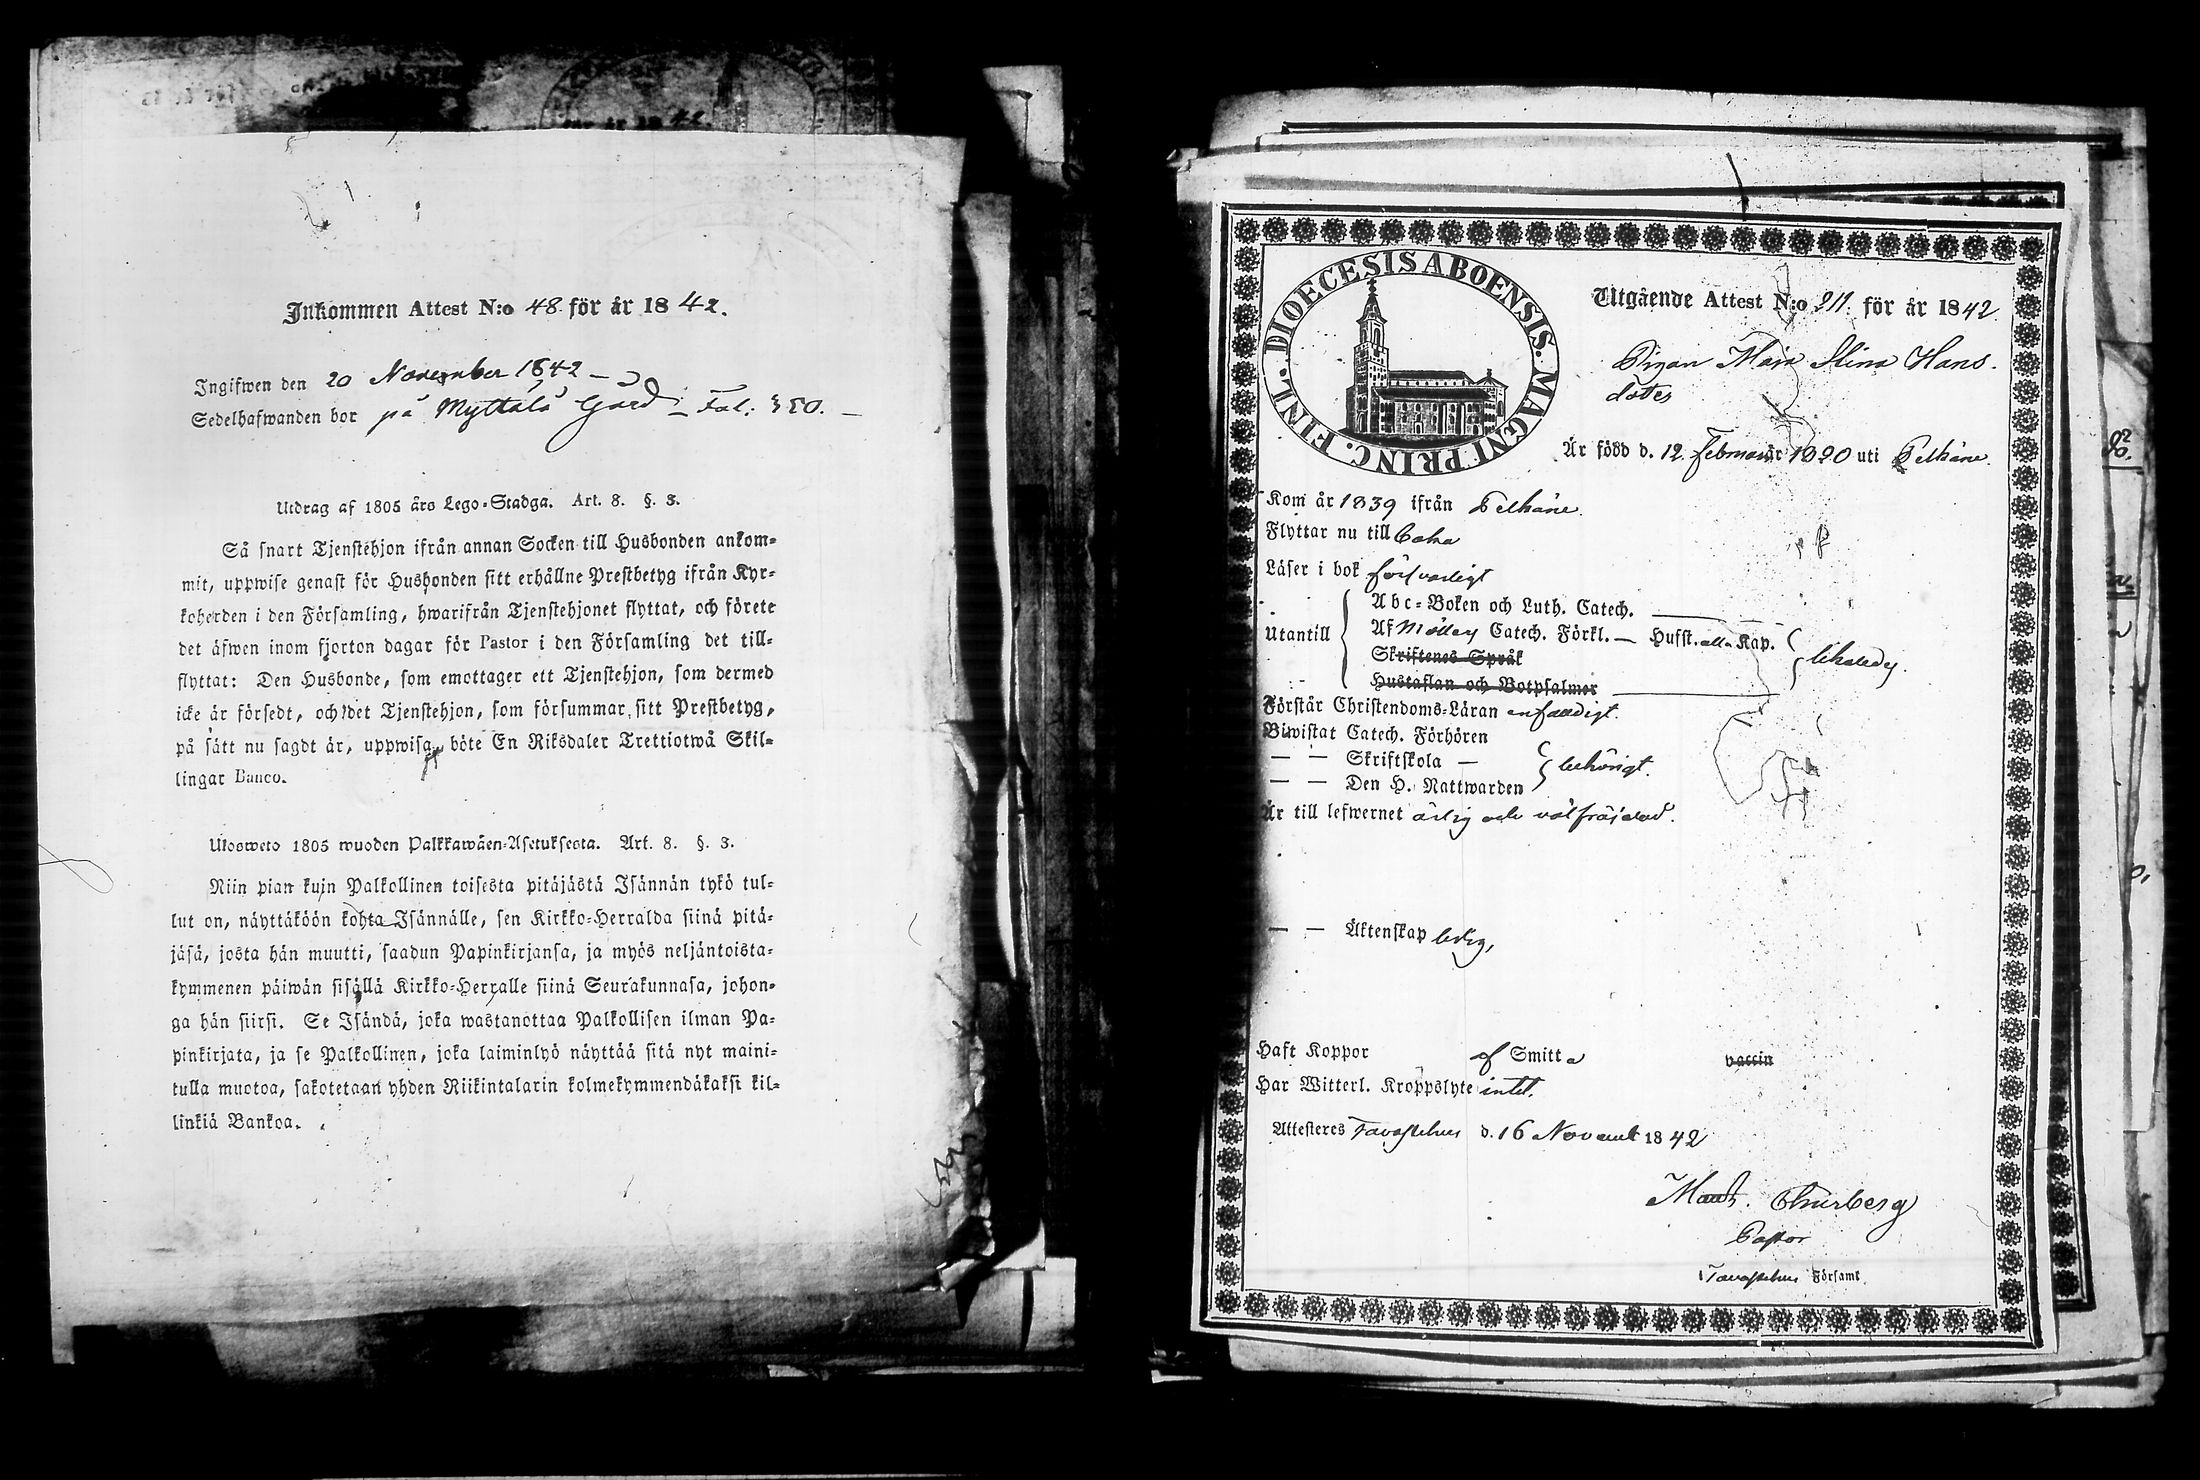 Inkommen Attest N:o 48 för år 1842.
Ingifwen den 20 November 1842 –
Sedelhafwanden bor på Myttälä Gård – Fol: 350. –
Utdrag af 1805 års Lego-Stadga. Art. 8. §. 3.
Så snart Tjenstehjon ifrån annan Socken till Husbonden ankom-
mit, uppwise genast för Husbonden sitt erhållne Prestbetyg ifrån Kyr-
koherden i den Församling, hwarifrån Tjenstehjonet flyttat, och förete
det äfwen inom fjorton dagar för Pastor i den Församling det till-
flyttat: Den Husbonde, som emottager ett Tjenstehjon, som dermed
icke är försedt, och det Tjenstehjon, som försummar sitt Prestbetyg,
på sätt nu sagdt är, uppwisa, böte En Riksdaler Trettiotwå Skil-
lingar Banco.
Ulosweto 1805 wuoden Palkkawäen-Asetuksesta. Art. 8. §. 3.
Niin pian kujn Palkollinen toisesta pitäjästä Isännän tykö tul-
lut on, näyttäköön kohta Isännälle, sen Kirkko-Herralda siinä pitä-
jäsä, josta hän muutti, saadun Papinkirjansa, ja myös neljäntoista-
kymmenen päiwän sisällä Kirkko-Herralle siinä Seurakunnasa, johon-
ga hän siirsi. Se Isändä, joka wastanottaa Palkollisen ilman Pa-
pinkirjata, ja se Palkollinen, joka laiminlyö näyttää sitä nyt maini-
tulla muotoa, sakotetaan yhden Riikintalarin kolmekymmendäkaksi kil-
linkiä Bankoa.
DIOECESIS ABOENSIS. MAGNI PRINC. FINL.
Utgående Attest N:o 211. för år 1842
Pigan Maja Stina Hans-
dotter
Är född d. 12 Februar 1820 uti Pelkäne.
Kom år 1839 ifrån Pelkäne.
Flyttar nu till
Läser i bok försvarligt
Abc-Boken och Luth. Catech.
Utantill Af Catech. Förkl. – Husst. alla Kap.
Skriftenes Språk
Hustaflan och Botpsalmer
Förstår Christendoms-Läran enfaldigt.
Biwistat Catech. Förhören
– – Skriftskola – behörigt.
– – Den H. Nattwarden
Är till lefwernet ärlig och välfräjdad.
– – Äktenskap ledig,
Haft Koppor af Smitta vaccin
Har Witterl. Kroppslyte intet.
Attesteres Tavastehus d. 16 Novemb 1842
Thurberg
Pastor
Tavastehus Församl.